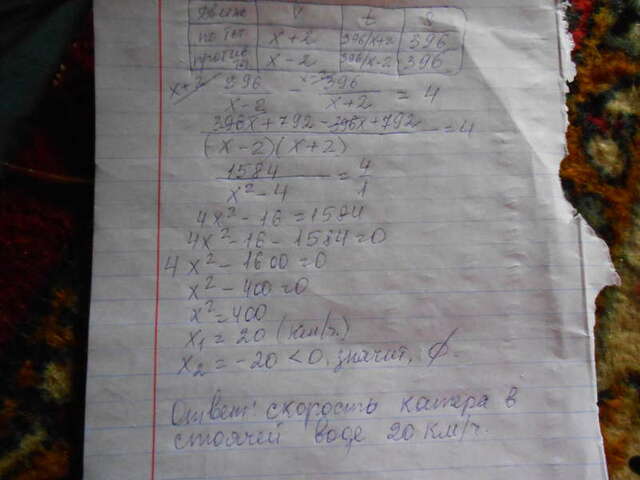 движ v t S
по теч x+2 396/x+2 396
против x-2 396/x-2 396
x+2 396/x-2 - x-2 396/x+2 = 4
396x+792-396x+792/(x-2)(x+2) = 4
1584/x²-4 = 4/1
4x²-16=1584
4x²-16-1584=0
4x²-1600=0
x²-400=0
x²=400
x₁=20 (км/ч)
x₂=-20<0, значит, ∅.
Ответ: скорость катера в
стоячей воде 20 км/ч.